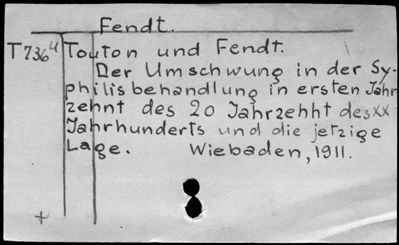 Fendt.
T736u Touton und Fendt.
Der Umschwung in der Sy-
philisbehandlung in ersten Jahr
zehnt des 20 Jahrzehht des XX
Jahrhunderts und die jetzige
Lage. Wiebaden, 1911.